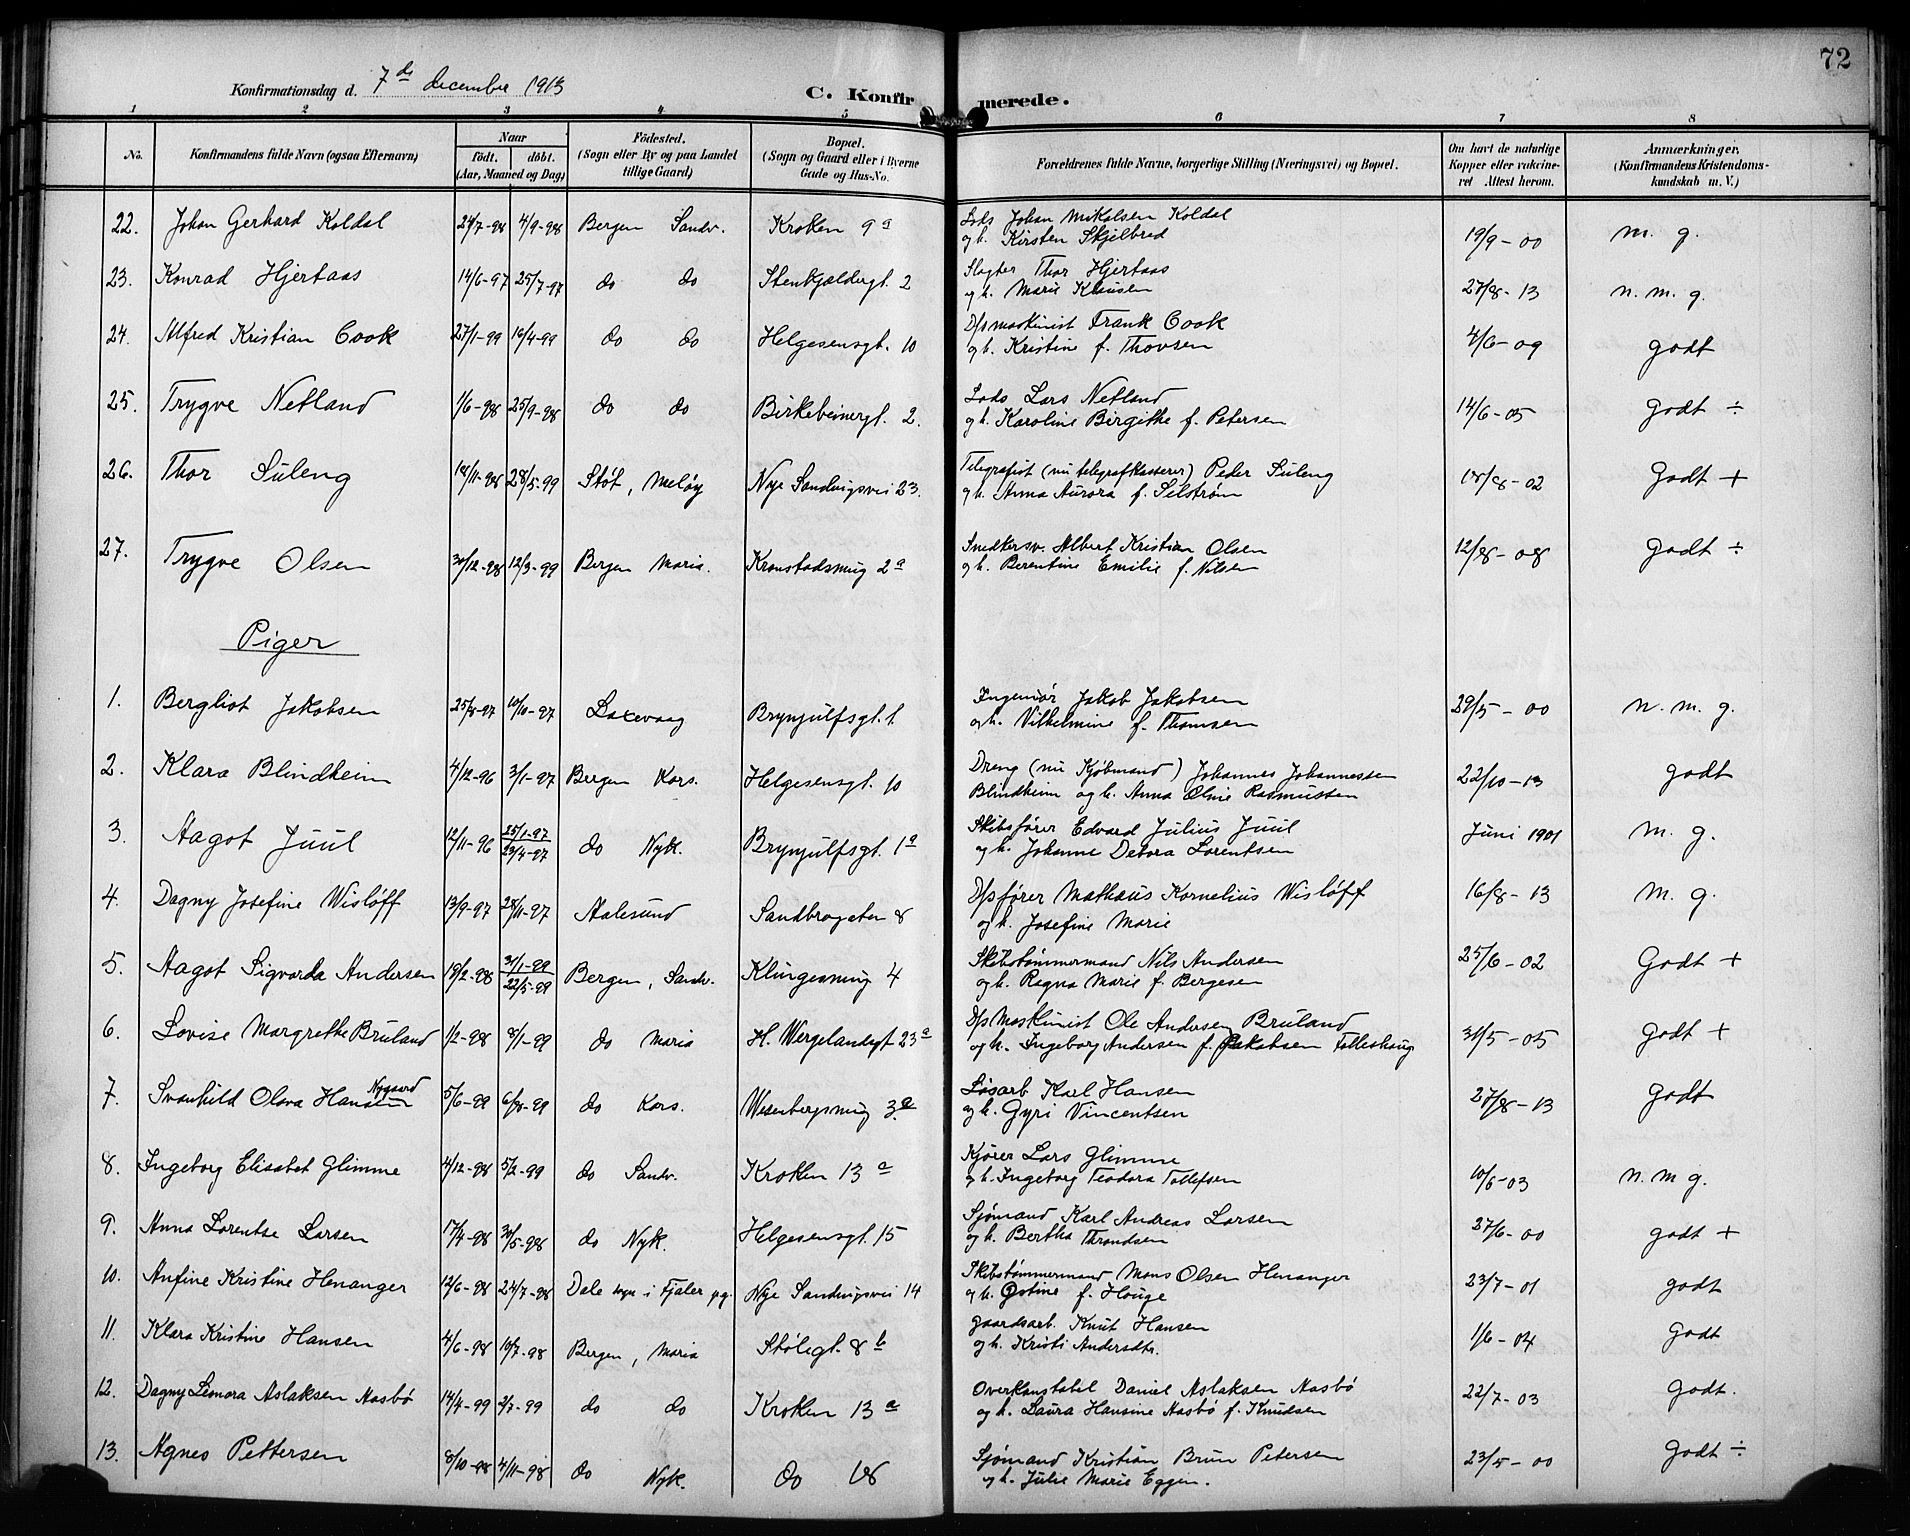 72
Konfirmationsdag d. 7de december 1913
C. Konfirmerede.
1 2 3 4 5 6 7 8
No.
Konfirmandens fulde Navn (ogsaa Efternavn)
Naar
födt. döbt.
(Aar, Maaned og Dag)
Födested.
(Sogn eller By og paa Landet
tillige Gaard)
Bopæl.
(Sogn og Gaard eller i Byerne
Gade og Hus-No.
Forældrenes fulde Navne, borgerlige Stilling (Næringsvei) og Bopæl.
Om havt de naturlige
Kopper eller vakcine-
ret Attest herom.
Anmærkninger.
(Konfirmandens Kristendoms-
kundskab m. V.)
22. Johan Gerhard Koldal 4/9-98 Bergen Sandv. Kroken 9a Lods Johan Mikalsen Koldal 19/9-00 m. g.
og h. Kirsten Skjelbred
23. Konrad Hjertaas 14/6-97 25/7-97 do do Stenkjeldergt. 2 Slagter Thor Hjertaas 27/8-13 n. m. g.
og h. Marie Klausen
24. Alfred Kristian Cook 27/1-99 16/4-99 do do Helgesensgt. 10 D/s maskinist Frank Cook 4/6-09 godt
og h. Kristine f. Thorsen
25. Trygve Netland 1/6-98 25/9-98 do do Birkebeinergt. 2. Lods Lars Netland 14/6-05 Godt ÷
og h. Karoline Birgitte f. Petersen
26. Thor Suleng 18/11-98 28/5-99 Støt, Meløy Nye Sandvigsvei 23. Telegrafist (nu telegrafkasserer) Peder Suleng Godt +
og h. Anna Aurora f. Selstrøm
27. Trygve Olsen 30/12-98 12/3-99 Bergen Maria. Kronstadsmug 2a Snedkersv. Albert Kristian Olsen 12/8-08 Godt ÷
og h. Berentine Emilie f. Nilsen
Piger
1. Bergliot Jakobsen 25/8-97 10/10-97 Laxevaag Brynjulfsgt. 1. Ingeniør Jakob Jakobsen 29/5-00 n. m. g.
og h. Vilhelmine f. Thomsen
2. Klara Blindheim 4/12-96 3/1-97 Bergen Kors. Helgesensgt. 10 Dreng (nu Kjøbmand) Johannes Johannessen 22/10-13 godt
Blindheim og h. Anna Oline Rasmussen
3. Aagot Juul 12/11-96 25/1-97 23/4-97 do Nyk. Brynjulfsgt. 1a Skibsfører Edvard Julius Juul Juni 1901 m. g.
og h. Johanne Debora Lorentsen
4. Dagny Josefine Wisløff 13/9-97 28/11-97 Aalesund Sandbrogaten 8 D/s fører Mathæus Kornelius Wisløff 16/8-13 m. g.
og h. Josefine Marie
5. Aagot Sigvarda Andersen 19/2-98 31/1-99 22/5-99 Bergen, Sandv. Klingesmug 4 Skibstømmermand Nils Andersen 25/6-02 Godt +
og h. Ragna Marie f. Bergesen
6. Lovise Margrethe Bruland 1/2-98 8/1-99 do Maria H. Wergelandsgt 23a D/s Maskinist Ole Andersen Bruland 31/5-05 Godt +
og h. Ingeborg Andersen f. Jakobsen Tolleshaug
7. Svanhild Olava Hansen Nygaard 5/6-99 6/8-99 do Kors. Wesenbergsmug 3a Løsarb Karl Hansen 27/8-13 Godt
og h. Gyri Vincentsen
8. Ingeborg Elisabet Glimme 4/12-98 5/2-99 do Sandv. Kroken 13a Kjører Lars Glimme 10/6-03 n. m g.
og h. Ingeborg Teodora Tollefsen
9. Anna Lorentse Larsen 17/4-98 30/5-98 do Nyk. Helgesensgt. 15 Sjømand Karl Andreas Larsen 27/6-00 godt +
og h. Bertha Throndsen
10. Anfine Kristine Henanger 12/6-98 24/7-98 Dale sogn i Fjaler pg. Nye Sandvigsvei 14 Skibstømmermand Mons Olsen Henanger 23/7-01 godt
og h. f. Houge
11. Klara Kristine Hansen 4/6-98 10/7-98 Bergen, Maria Stølegt. 8b Gaardsarb. Knut Hansen 1/6-04 Godt
og h. Kristi Andersdtr.
12. Dagny Leonora Aslaksen Aasbø 14/4-99 2/7-99 do do Kroken 13a Overkonstabel Daniel Aslaksen Aasbø 22/7-03 Godt.
og h. Laura Hansine Aasbø f. Knudsen
13. Agnes Pettersen 8/10-98 4/11-98 do Nyk. do 18 Sjømand Kristian Brun Petersen 23/5-00 Godt ÷
og h. Julie Marie Eggen.